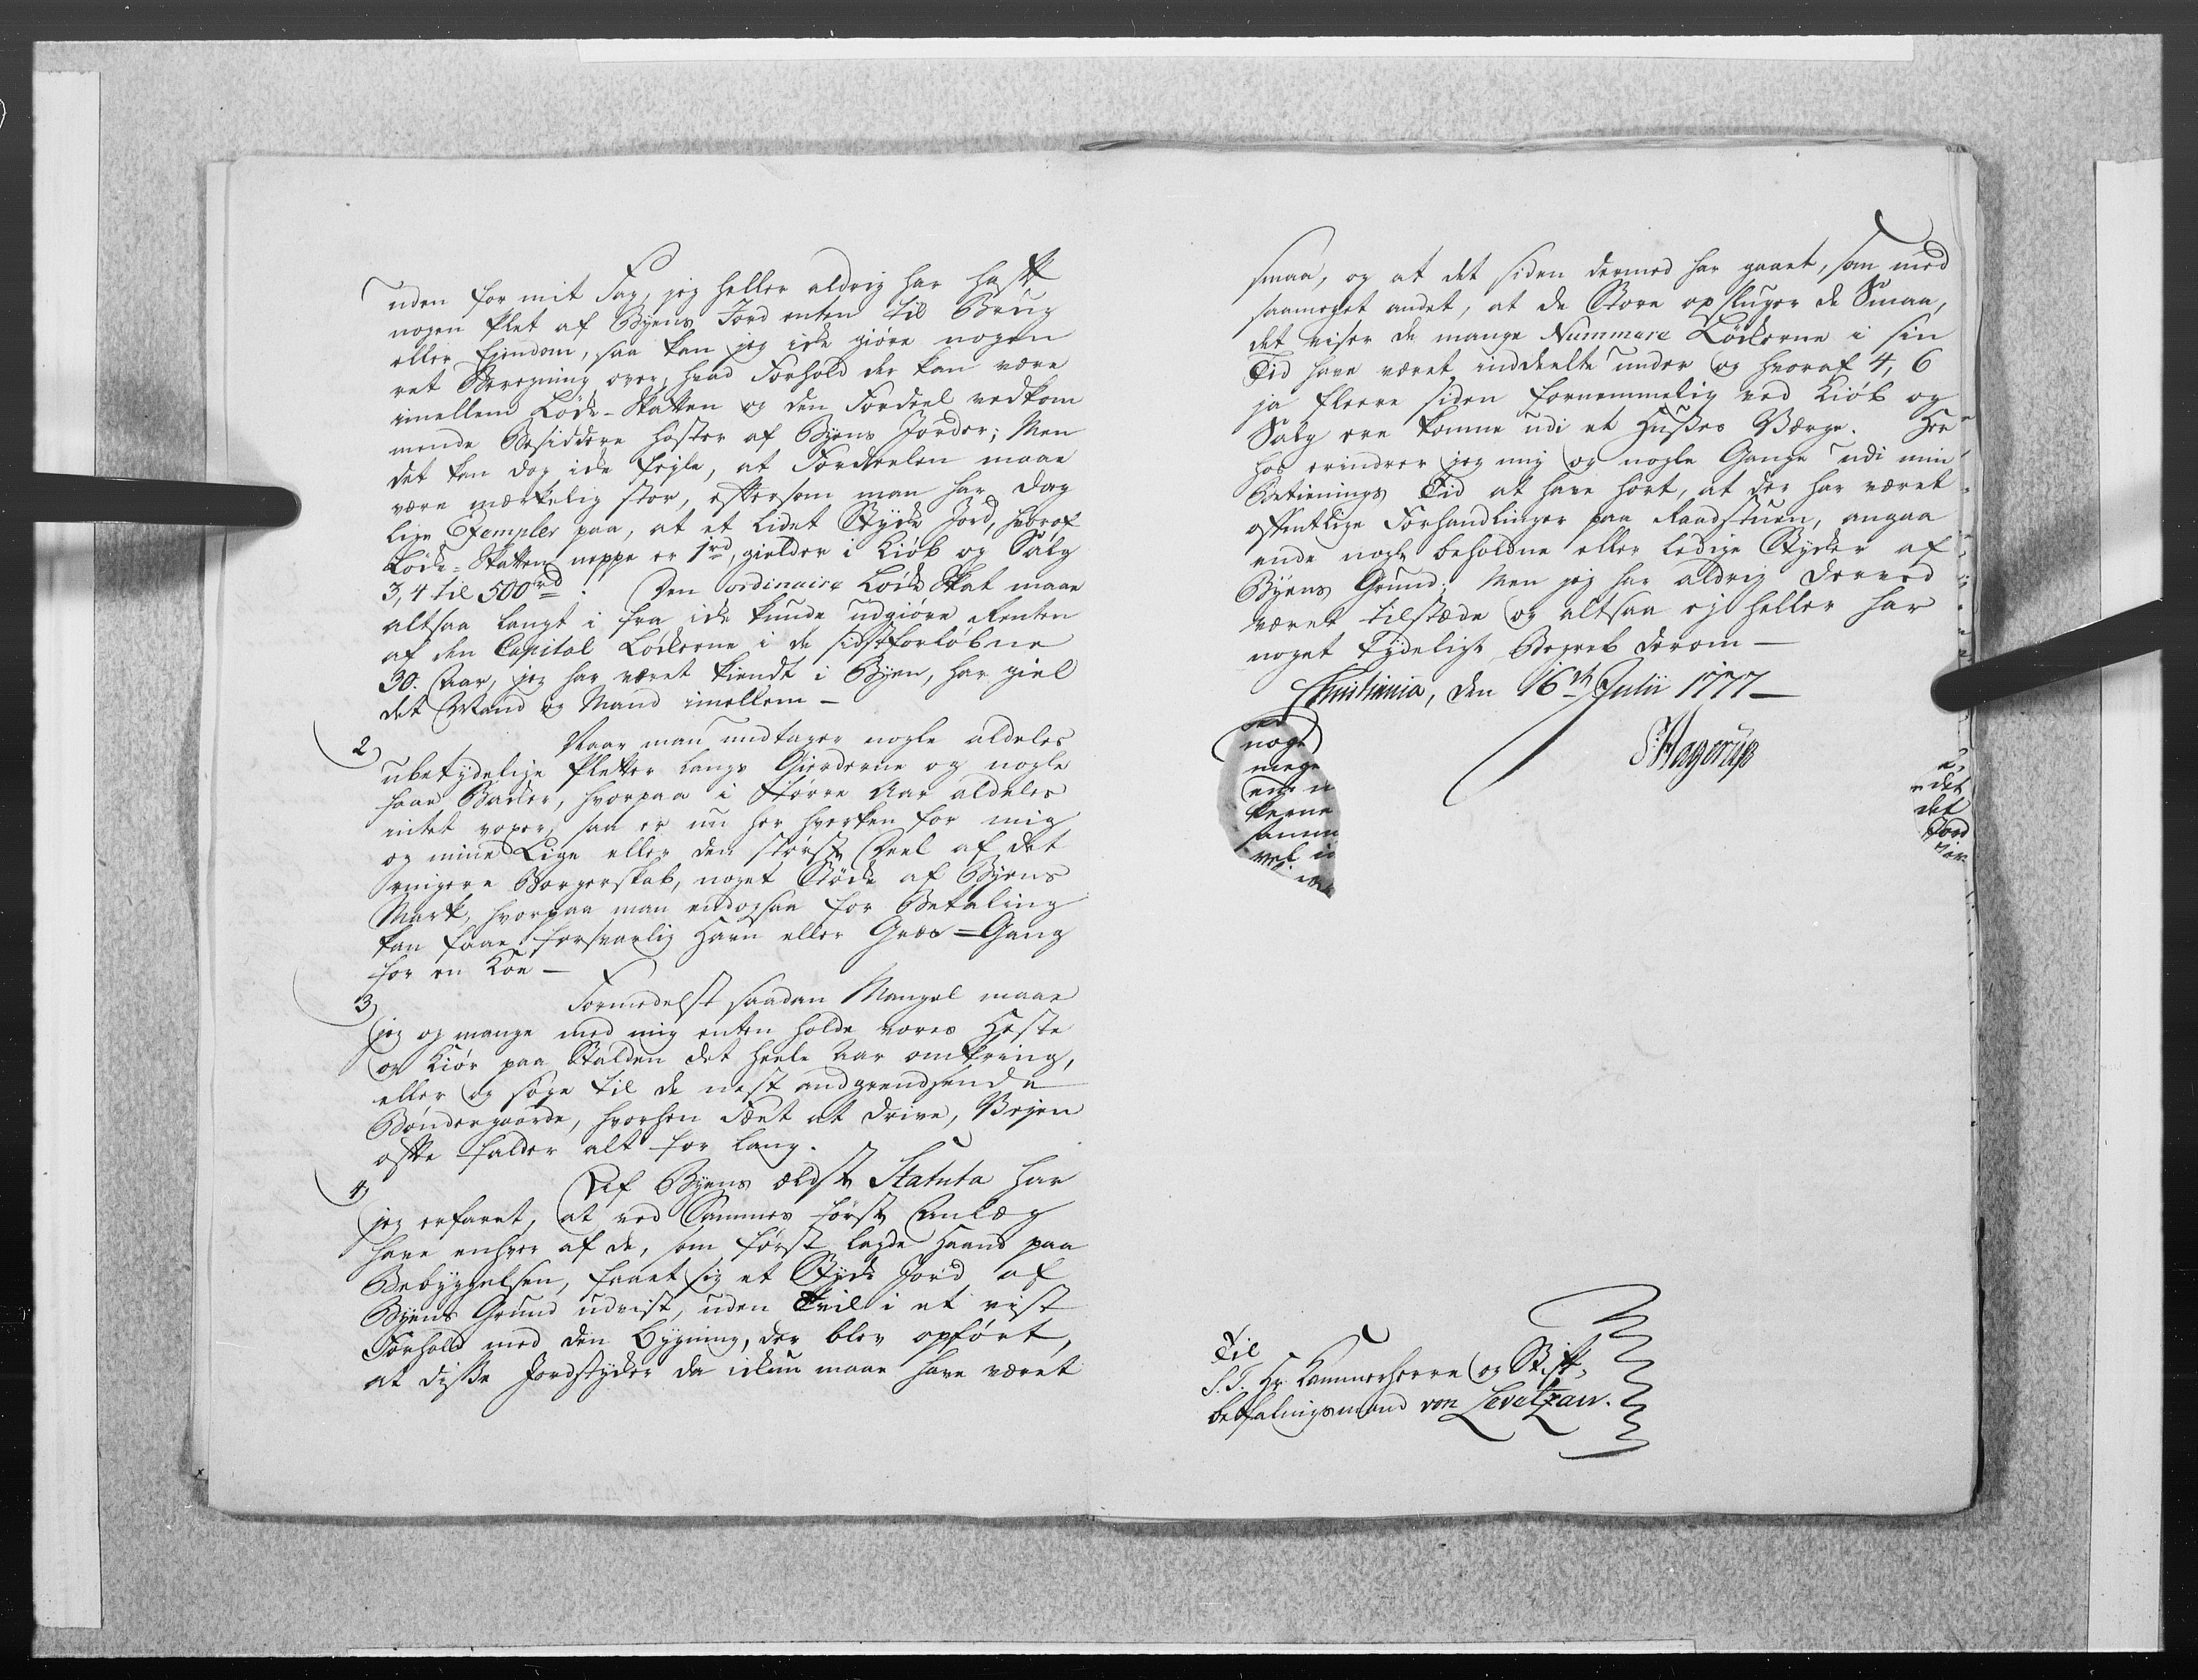 uden for mit Fag, jeg heller aldrig har hafft
nogen Plet af Byens Jord enten til Brug
eller Ejendom, saa kan jeg icke giøre nogen
ret Beregning over, hvad Forhold der kan være
imellem Løcke-Skatten og den Fordeel vedkom
mende Besiddere høster af Byens Jorder; Men
det kan dog icke fejle, at Fordeelen maae
være mærkelig stor, eftersom man har dag
lige Exempler paa, at et lidet Stycke Jord, hvoraf
Løcke-Skatten neppe er 1 rd, gielder i Kiøb og Salg
3, 4 til 500 rd. Den ordinaire Løcke Skat maae
altsaa langt i fra icke kunde udgiøre Renten
af den Capital Løckerne i de sidstforløbne
30. Aar, jeg har været kiendt i Byen, har giel
det Mand og Mand imellem –
2) Naar man undtager nogle aldeles
ubetydelige Pletter langs Gierderne og nogle
faae Backer, hvorpaa i tørre Aar aldeles
intet voxer, saa er nu her hverken for mig
og mine Lige eller den største Deel af det
ringere Borgerskab, noget Støcke af Byens
Mark, hvorpaa man endogsaa for Betaling
kan faae forsvarlig Havn eller Græs=Gang
for en Koe –
3) Formedelst saadan Mangel maae
jeg og mange med mig enten holde vores Heste
og Kiør paa Stalden det heele Aar omkring,
eller og søge til de nest andgrendsende
Bøndergaarde, hvorhen Fæet at drive, Vejen
ofte falder alt for lang.
4) Af Byens ældste Statuta har
jeg erfaret, at ved Sammes første Anlæg
have enhver af de, som først lagde Haand paa
Bebyggelsen, faaet sig et Stycke Jord af
Byens Grund udvist, uden Tvil i et vist
Forhold med den Bygning, der blev opført,
at disse Jordstycker da ickun maae have været
smaa, og at det siden dermed har gaaet, som med
saameget andet, at de Store opsluger de Smaa,
det viser de mange Nummere Løckerne i sin
Tid have været inddeelte under og hvoraf 4, 6
ja fleere siden fornemmelig ved Kiøb og
Salg ere komne udi et Huses Værge. Her
hos erindrer jeg mig og nogle Gange udi min
Betienings Tid at have hørt, at der har været
offentlige Forhandlinger paa Raadstuen, angaa
ende nogle beholdne eller ledige Stycker af
Byens Grund; Men jeg har aldrig derved
været tilstæde og altsaa ej heller har
noget tydeligt Begreb derom –
Christiania, den 16th Julii 1777 –
Hagerup
nogl
mege
kerne
samm
vel i
det
det
Jord
Til
S. T. Hr. Kammerherre og Stift
befalingsmand von Levetzau.